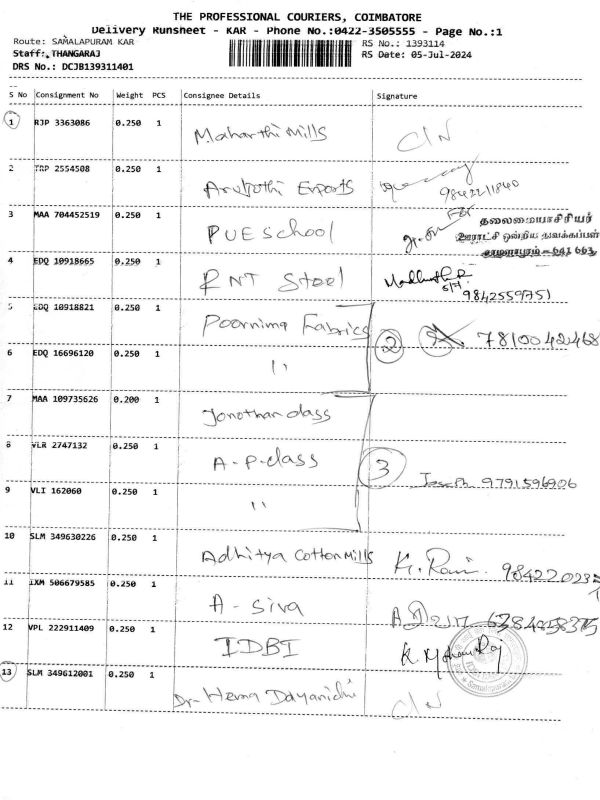 THE PROFESSIONAL COURIERS, COIMBATORE
Delivery Runsheet - KAR - Phone No.:0422-3505555 - Page No.:1
Route: SAMALAPURAM KAR RS No.: 1393114
Staff: THANGARAJ RS Date: 05-Jul-2024
DRS No.: DCJB139311401
S No Consignment No Weight PCS Consignee Details Signature
1 RJP 3363086 0.250 1 Maharthi Mills C/N
2 TRP 2554508 0.250 1 Exports 9842211840
3 MAA 704452519 0.250 1 PUE School For
தலைமையாசிரியர்
ஊராட்சி ஒன்றிய துவக்கப்பள்
சாமளாபுரம் - 641 663
4 EDQ 10918665 0.250 1 RNT Steel 5/7 9842559751
5 EDQ 10918821 0.250 1 Poornima Fabrics 2 7810042468
6 EDQ 16696120 0.250 1 "
7 MAA 109735626 0.200 1 Jonothan dass
8 VLR 2747132 0.250 1 A-P-dass 3 Joseph 9791596906
9 VLI 162060 0.250 1 "
10 SLM 349630226 0.250 1 Adhitya Cotton Mills K. Rani 98422023
11 IXM 506679585 0.250 1 A-Siva
12 VPL 222911409 0.250 1 IDBI K Mohan Raj
13 SLM 349612001 0.250 1 Dr-Hema Dayanidhi C/N